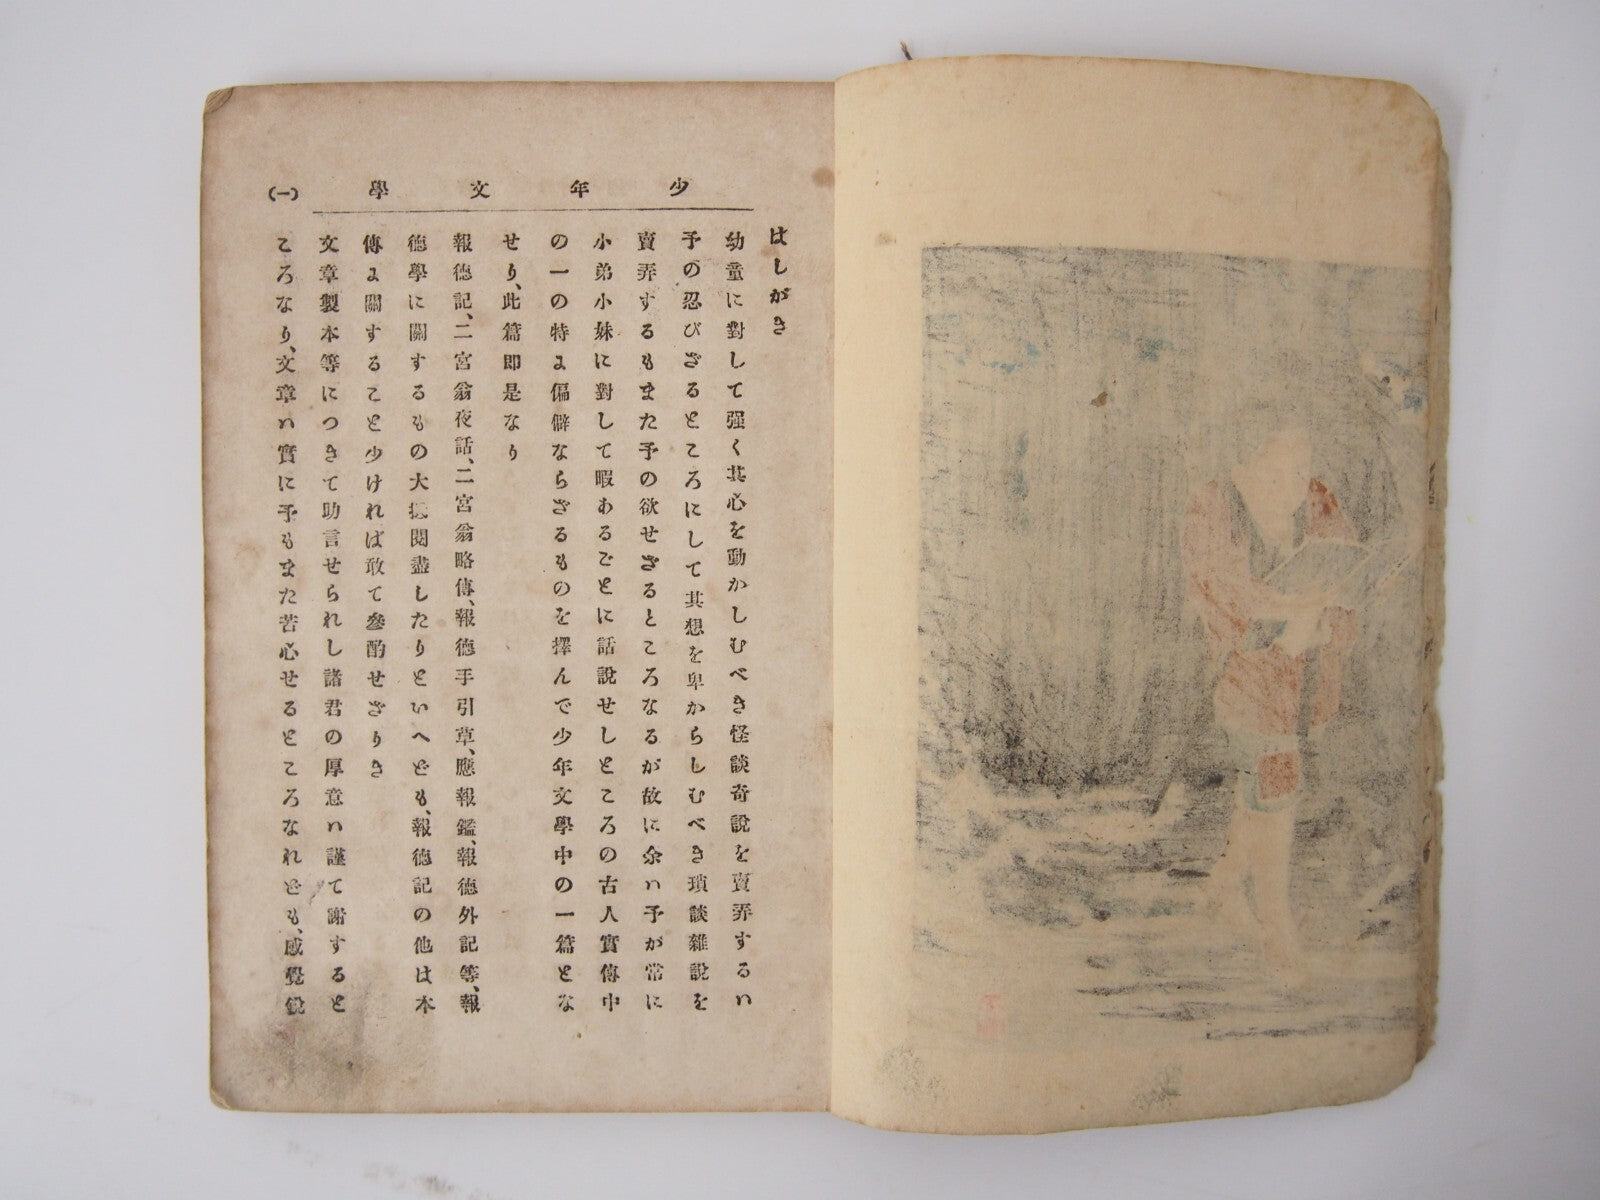 少年文學
(一)
はしがき
幼童に對して强く其心を動かしむべき怪談奇說を賣弄するハ
予の忍びざるところにして其想を卑からしむべき瑣談雜說を
賣弄するもまた予の欲せざるところなるが故に余ハ予が常に
小弟小妹に對して暇あるごとに話說せしところの古人實傳中
の一の特に偏僻ならざるものを擇んで少年文學中の一篇とな
せり、此篇即是なり
報德記、二宮翁夜話、二宮翁略傳、報德手引草、應報鑑、報德外記等、報
德學に關するもの大抵閱盡したりといへども、報德記の他は本
傳に關すること少ければ敢て參酌せざりき
文章製本等につきて助言せられし諸君の厚意ハ謹て謝すると
ころなり、文章ハ實に予もまた苦心せるところなれども、感覺銳